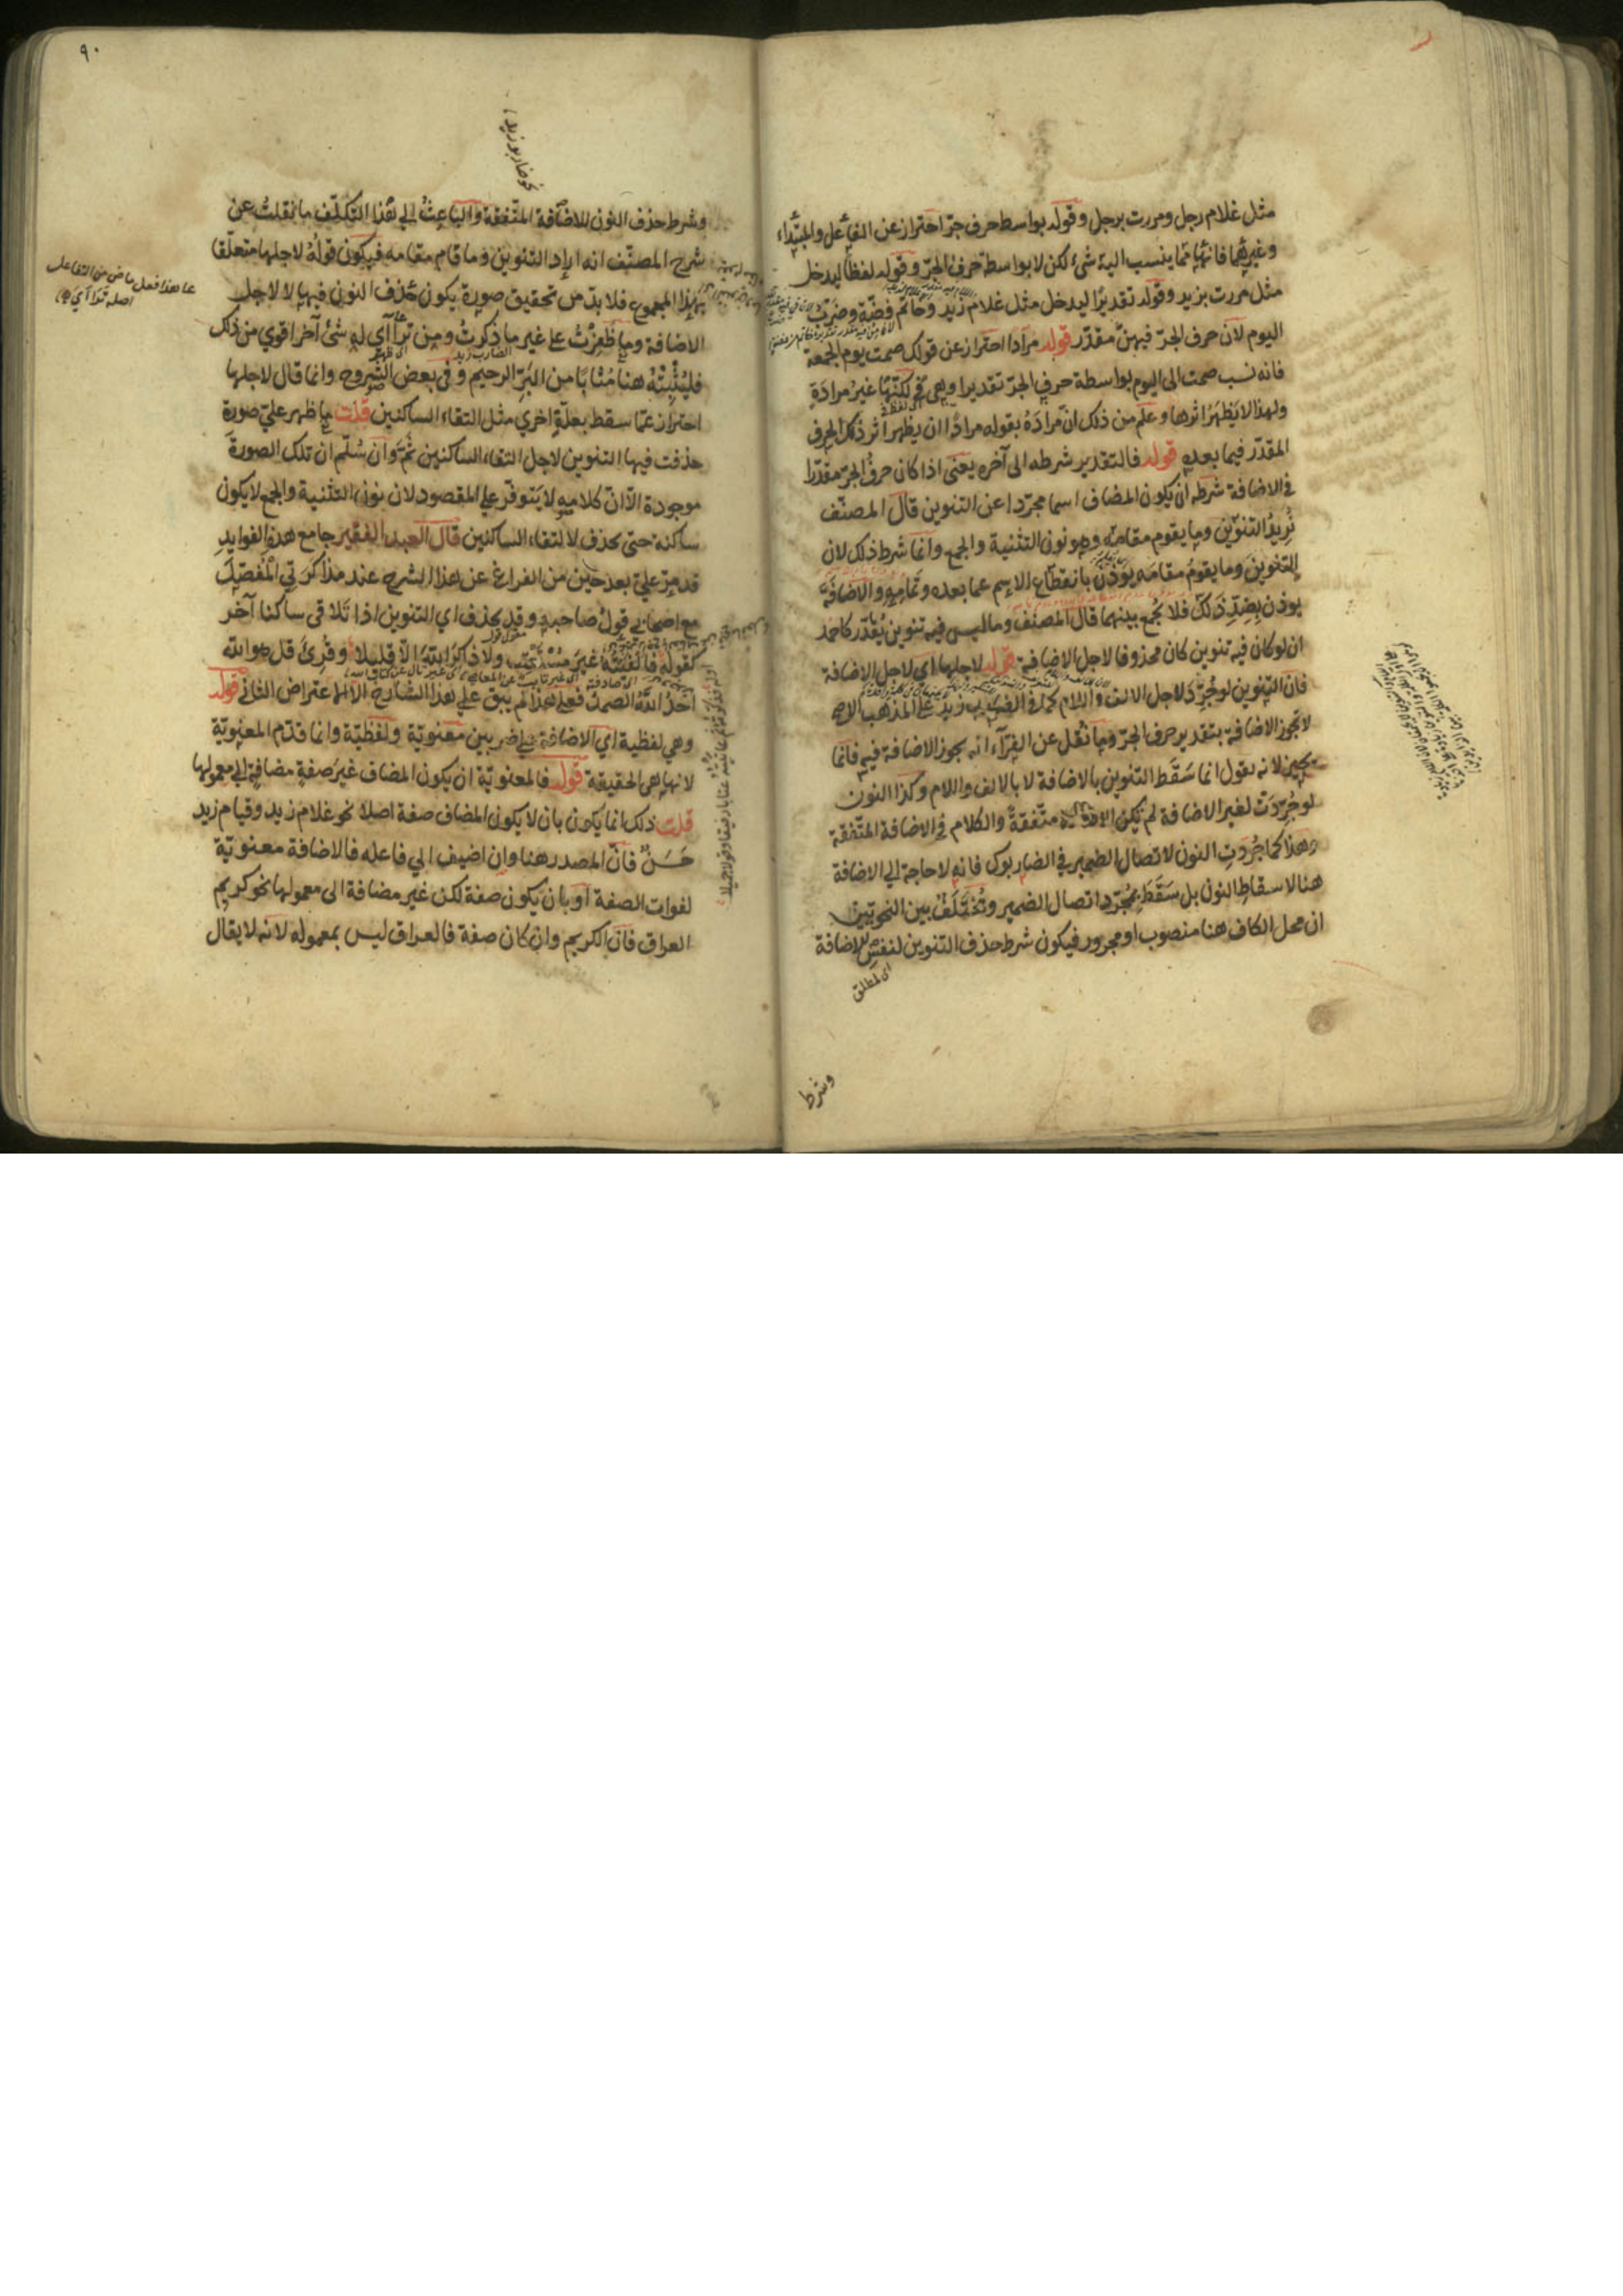 مثل غلام رجل ومررت برجل وقوله بواسطة حرف جر احتراز عن الفاعل والمبتداء
وغيرهما فانهما مما ينسب اليه شئ لكن لا بواسطة حرف الجر وقوله لفظا ليدخل
مثل مررت بزيد وقوله تقديرا ليدخل مثل غلام زيد وخاتم فضة وضرب
اليوم لان حرف الجر فيهن مقدر قوله مرادا احتراز عن قولك صمت يوم الجمعة
فانه نسب صمت الى اليوم بواسطة حرف الجر تقديرا وهى فى لكنها غير مرادة
ولهذا لا يظهر اثرها وعلم من ذلك ان مراده بقوله مرادا ان يظهر اثر ذلك الحرف
المقدر فيما بعده قوله فالتقدير شرطه الى آخره يعنى اذا كان حرف الجر مقدرا
فى الاضافة شرطه ان يكون المضاف اسما مجردا عن التنوين قال المصنف
نريد التنوين وما يقوم مقامه وهو نون التثنية والجمع وانما شرط ذلك لان
التنوين وما يقوم مقامه يوذن بانقطاع الاسم عما بعده وتمامه والاضافة
يوذن بضد ذلك فلا يجمع بينهما قال المصنف وما ليس فيه تنوين يقدر كاحمد
ان لو كان فيه تنوين كان محذوفا لاجل الاضافة قوله لاجلها اي لاجل الاضافة
فان التنوين لو جرد لاجل الالف واللام كما فى الضارب زيد على المذهب الاصح
لا تجوز الاضافة بتقدير حرف الجر وما نقل عن الفراء انه يجوز الاضافة فيه فانما
يجيز لانه يقول انما سقط التنوين بالاضافة لا بالالف واللام وكذا النون
لو جردت لغير الاضافة لم تكن الاضافة متفقة والكلام فى الاضافة المتفقة
وهذا كما جردت النون لاتصال الضمير فى الضاربوك فانه لا حاجة الي الاضافة
هنا لاسقاط النون بل سقط بمجرد اتصال الضمير ويختلف بين النحويين
ان محل الكاف هنا منصوب او مجرور فيكون شرط حذف التنوين لنفس الاضافة
اى المطلق
وشرط
٩٠
نحو ضاربو زيد
وشرط حذف النون للاضافة المتفقة والباعث الي هذا التكلف ما نقلت عن
شرح المصنف انه اراد التنوين وما قام مقامه فيكون قوله لاجلها متعلقا
بهذا المجموع فلا بد من تحقيق صورة يكون حذف النون فيها لا لاجل
الاضافة وما ظفرت على غير ما ذكرت ومن تراآي له شئ آخر اقوي من ذلك
فليثبته هنا مثابا من البر الرحيم وفى بعض الشروح وانما قال لاجلها
احتراز عما سقط بعلة اخري مثل التقاء الساكنين قلت ما ظهر علي صورة
حذفت فيها التنوين لاجل التقاء الساكنين ثم وان سلم ان تلك الصورة
موجودة الا ان كلامه لا يتوفر علي المقصود لان نون التثنية والجمع لا يكون
ساكنة حتى يحذف لالتقاء الساكنين قال العبد الفقير جامع هذه الفوايد
قد مر علي بعد حين من الفراغ عن هذا الشرح عند مذاكرتي المفصل
مع اصحابي قول صاحبه وقد يحذف اي التنوين اذا تلاقى ساكنا آخر
كقوله فالفيته غير مستعتب ولا ذاكر الله الا قليلا وقرئ قل هو الله
احد الله الصمد فعلى هذا لم يبق علي هذا الشارح الا الاعتراض الثاني قوله
وهي لفظية اي الاضافة علي ضربين معنوية ولفظية وانما قدم المعنوية
لانها هى الحقيقة قوله فالمعنوية ان يكون المضاف غير صفة مضافة الي معمولها
قلت ذلك انما يكون بان لا يكون المضاف صفة اصلا نحو غلام زيد وقيام زيد
حسن فان المصدر هنا وان اضيف الي فاعله فالاضافة معنوية
لفوات الصفة او بان يكون صفة لكن غير مضافة الى معمولها نحو كريم
العراق فان الكريم وان كان صفة فالعراق ليس بمعموله لانه لا يقال
على هذا فعل ماض من التفاعل
اصله تراآي